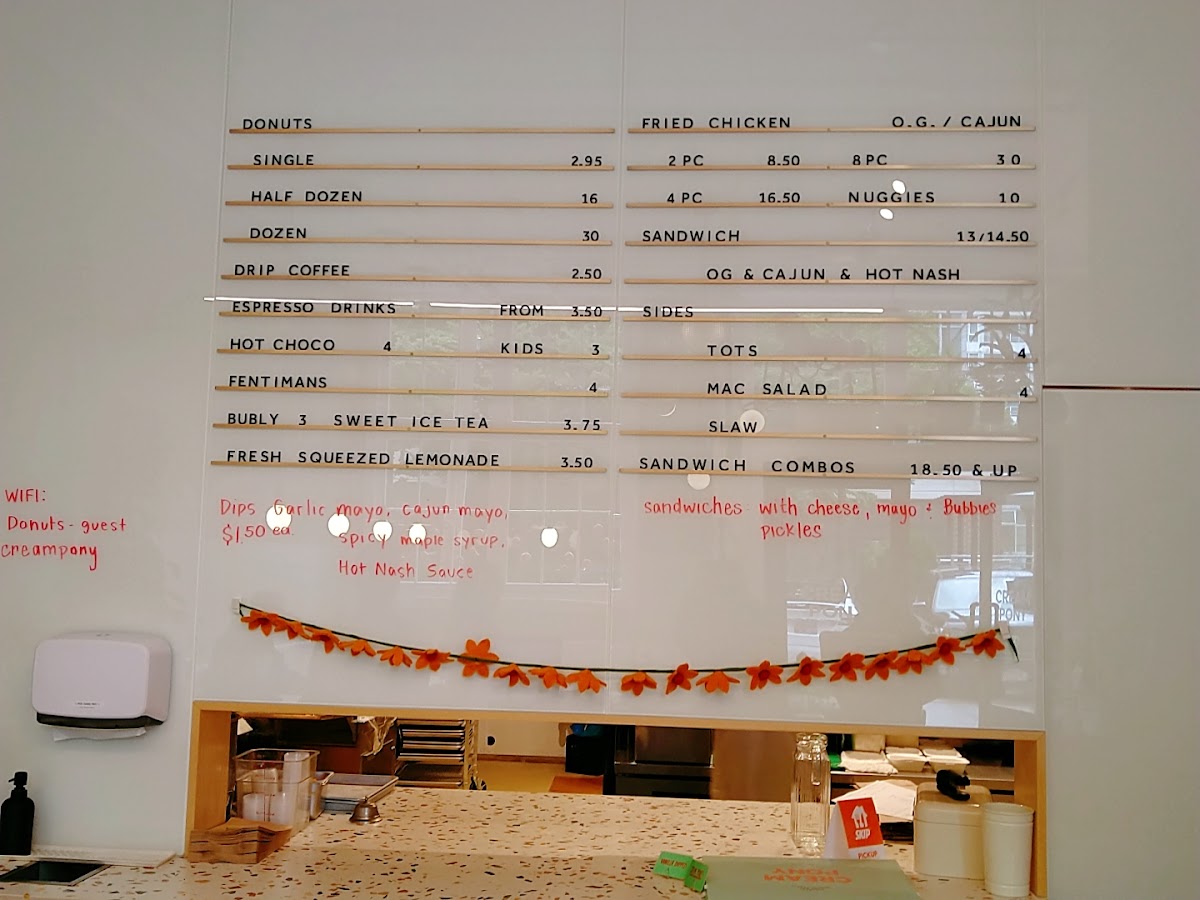 DONUTS
SINGLE 2.95
HALF DOZEN 16
DOZEN 30
DRIP COFFEE 2.50
ESPRESSO DRINKS FROM 3.50
HOT CHOCO 4 KIDS 3
FENTIMANS 4
BUBLY 3 SWEET ICE TEA 3.75
FRESH SQUEEZED LEMONADE 3.50
FRIED CHICKEN O.G. / CAJUN
2 PC 8.50 8 PC 30
4 PC 16.50 NUGGIES 10
SANDWICH 13/14.50
OG & CAJUN & HOT NASH
SIDES
TOTS 4
MAC SALAD 4
SLAW
SANDWICH COMBOS 18.50 & UP
WIFI:
Donuts-guest
creampony
Dips Garlic mayo, cajun mayo,
$1.50 ea. spicy maple syrup,
Hot Nash Sauce
sandwiches with cheese, mayo + Bubbies
pickles
SKIP
PICKUP
CREAM
PONY